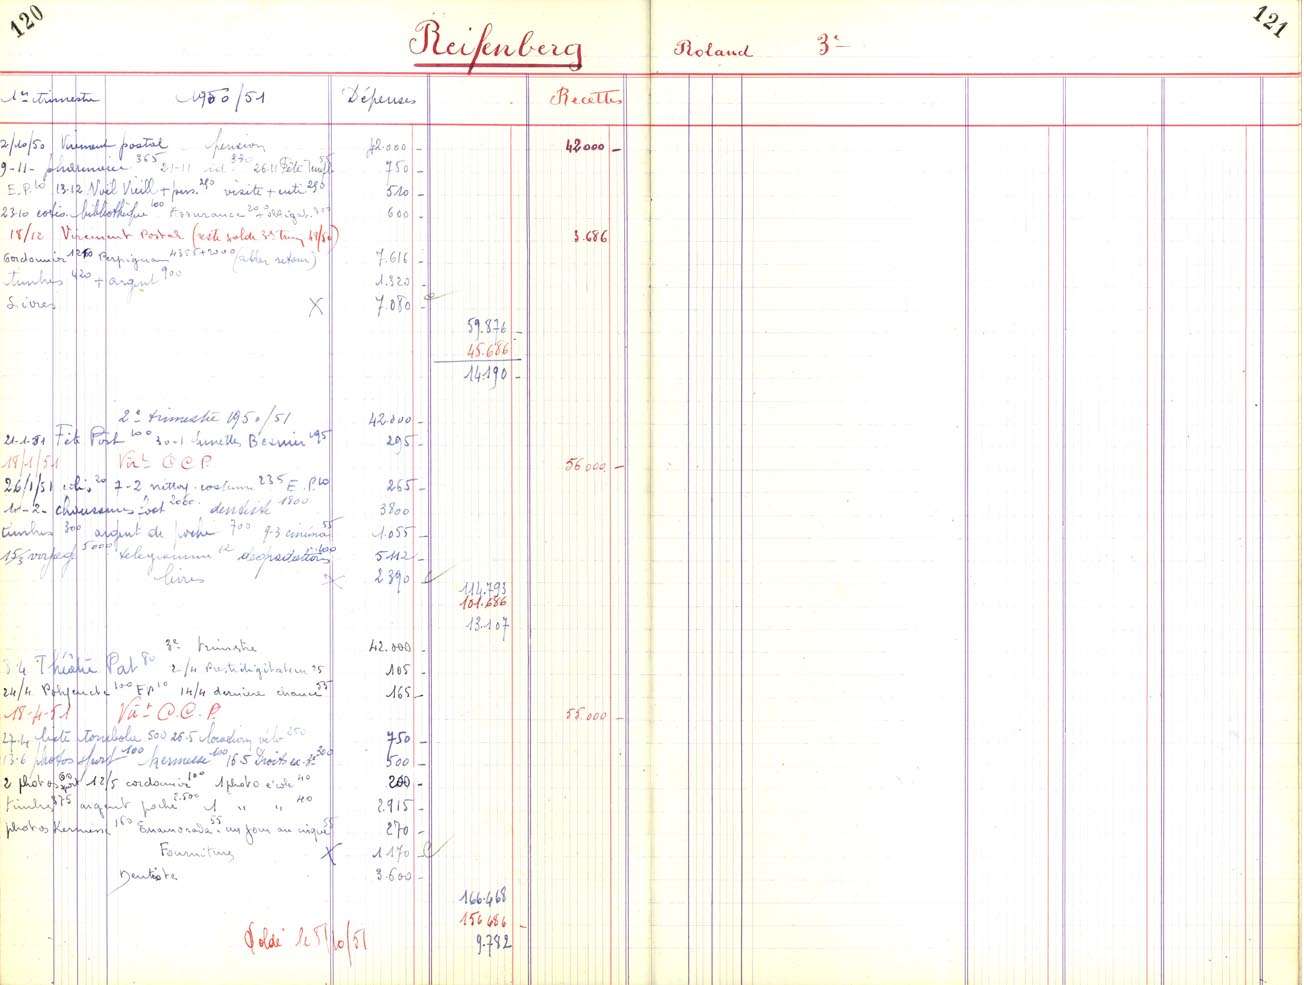 120
121
Reifenberg Roland 3e
1er trimestre 1950/51 Dépenses Recettes
2/10/50 Virement postal pension 42.000 - 42000 -
9-11- pharmacie 365 21-11 id. 330 26.11 Fête Temple 55 750 -
E.P. 10 13.12 Noël Vieill + pers. 250 visite + cuti 250 510 -
23.10 cotis. bibliothèque 100 Assurance 200 300 600 -
18/12 Virement Postal (reste solde 3e trim 49/50) 3.686
Cordonnier 1260 Perpignan 4356 + 2000 (aller retour) 7.616 -
timbres 420 + argent 900 1.320 -
Livres X 7.080 -
59.876 -
45.686
14.190 -
2e trimestre 1950/51 42.000 -
21-1-51 Fête Post 100 30-1 lunettes Besnier 195 295 -
18/1/51 Virt C.C.P. 56000. -
26/1/51 colis 20 7-2 nettoy. costume 235 E.P. 10 265 -
10-2- chaussures foot 2000 dentiste 1800 3800
timbres 300 argent de poche 700 9-3 cinéma 55 1.055 -
15/3 voy 5000 telegramme 12 dégradations 100 5112 -
livres X 2390
114.793
101.686
13.107
3e trimestre 42.000 -
3.4 Théâtre Pat 80 2/4 Prestidigitateur 25 105 -
24/4 Polyeucte 100 E.P. 10 14/4 dernière chance 55 165 -
18-4-51 Virt C.C.P. 55.000 -
27.4 liste tombola 500 26.5 location vélo 250 750 -
13.6 photos sport 100 kermesse 100 16 5 Droits ex. 300 500 -
2 photos sport 60 12/5 cordonnier 100 1 photo école 40 200 -
timbres 375 argent poche 2.500 1 " " 40 2.915 -
photos Kermesse 160 Enamorada 55 un jour au cirque 55 270 -
Fournitures X 1170 -
Dentiste 3.600 -
166.468
156 686 -
Soldé le 5/10/51 9.782